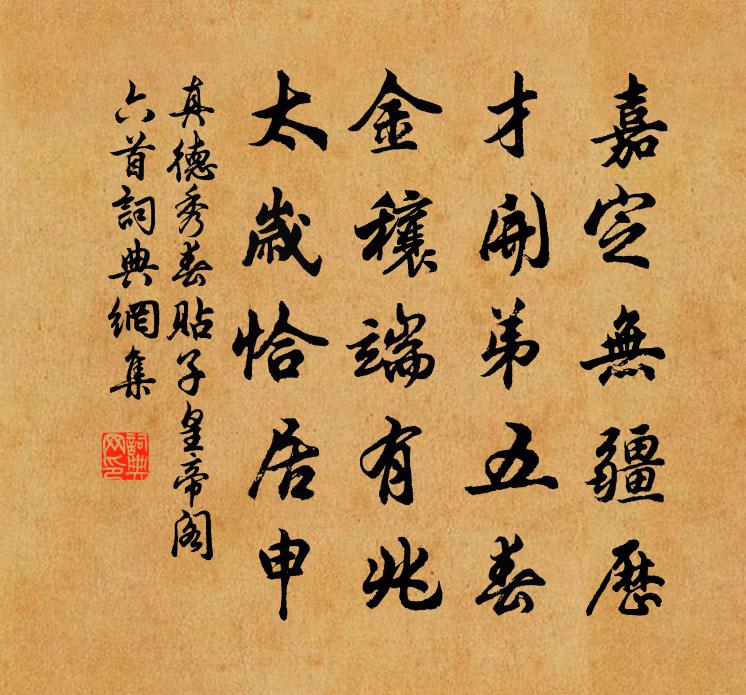 嘉定無疆歷
才開弟五春
金穰端有兆
太歲恰居申
真德秀春貼子皇帝阁
六首詞典網集
詞典
网印